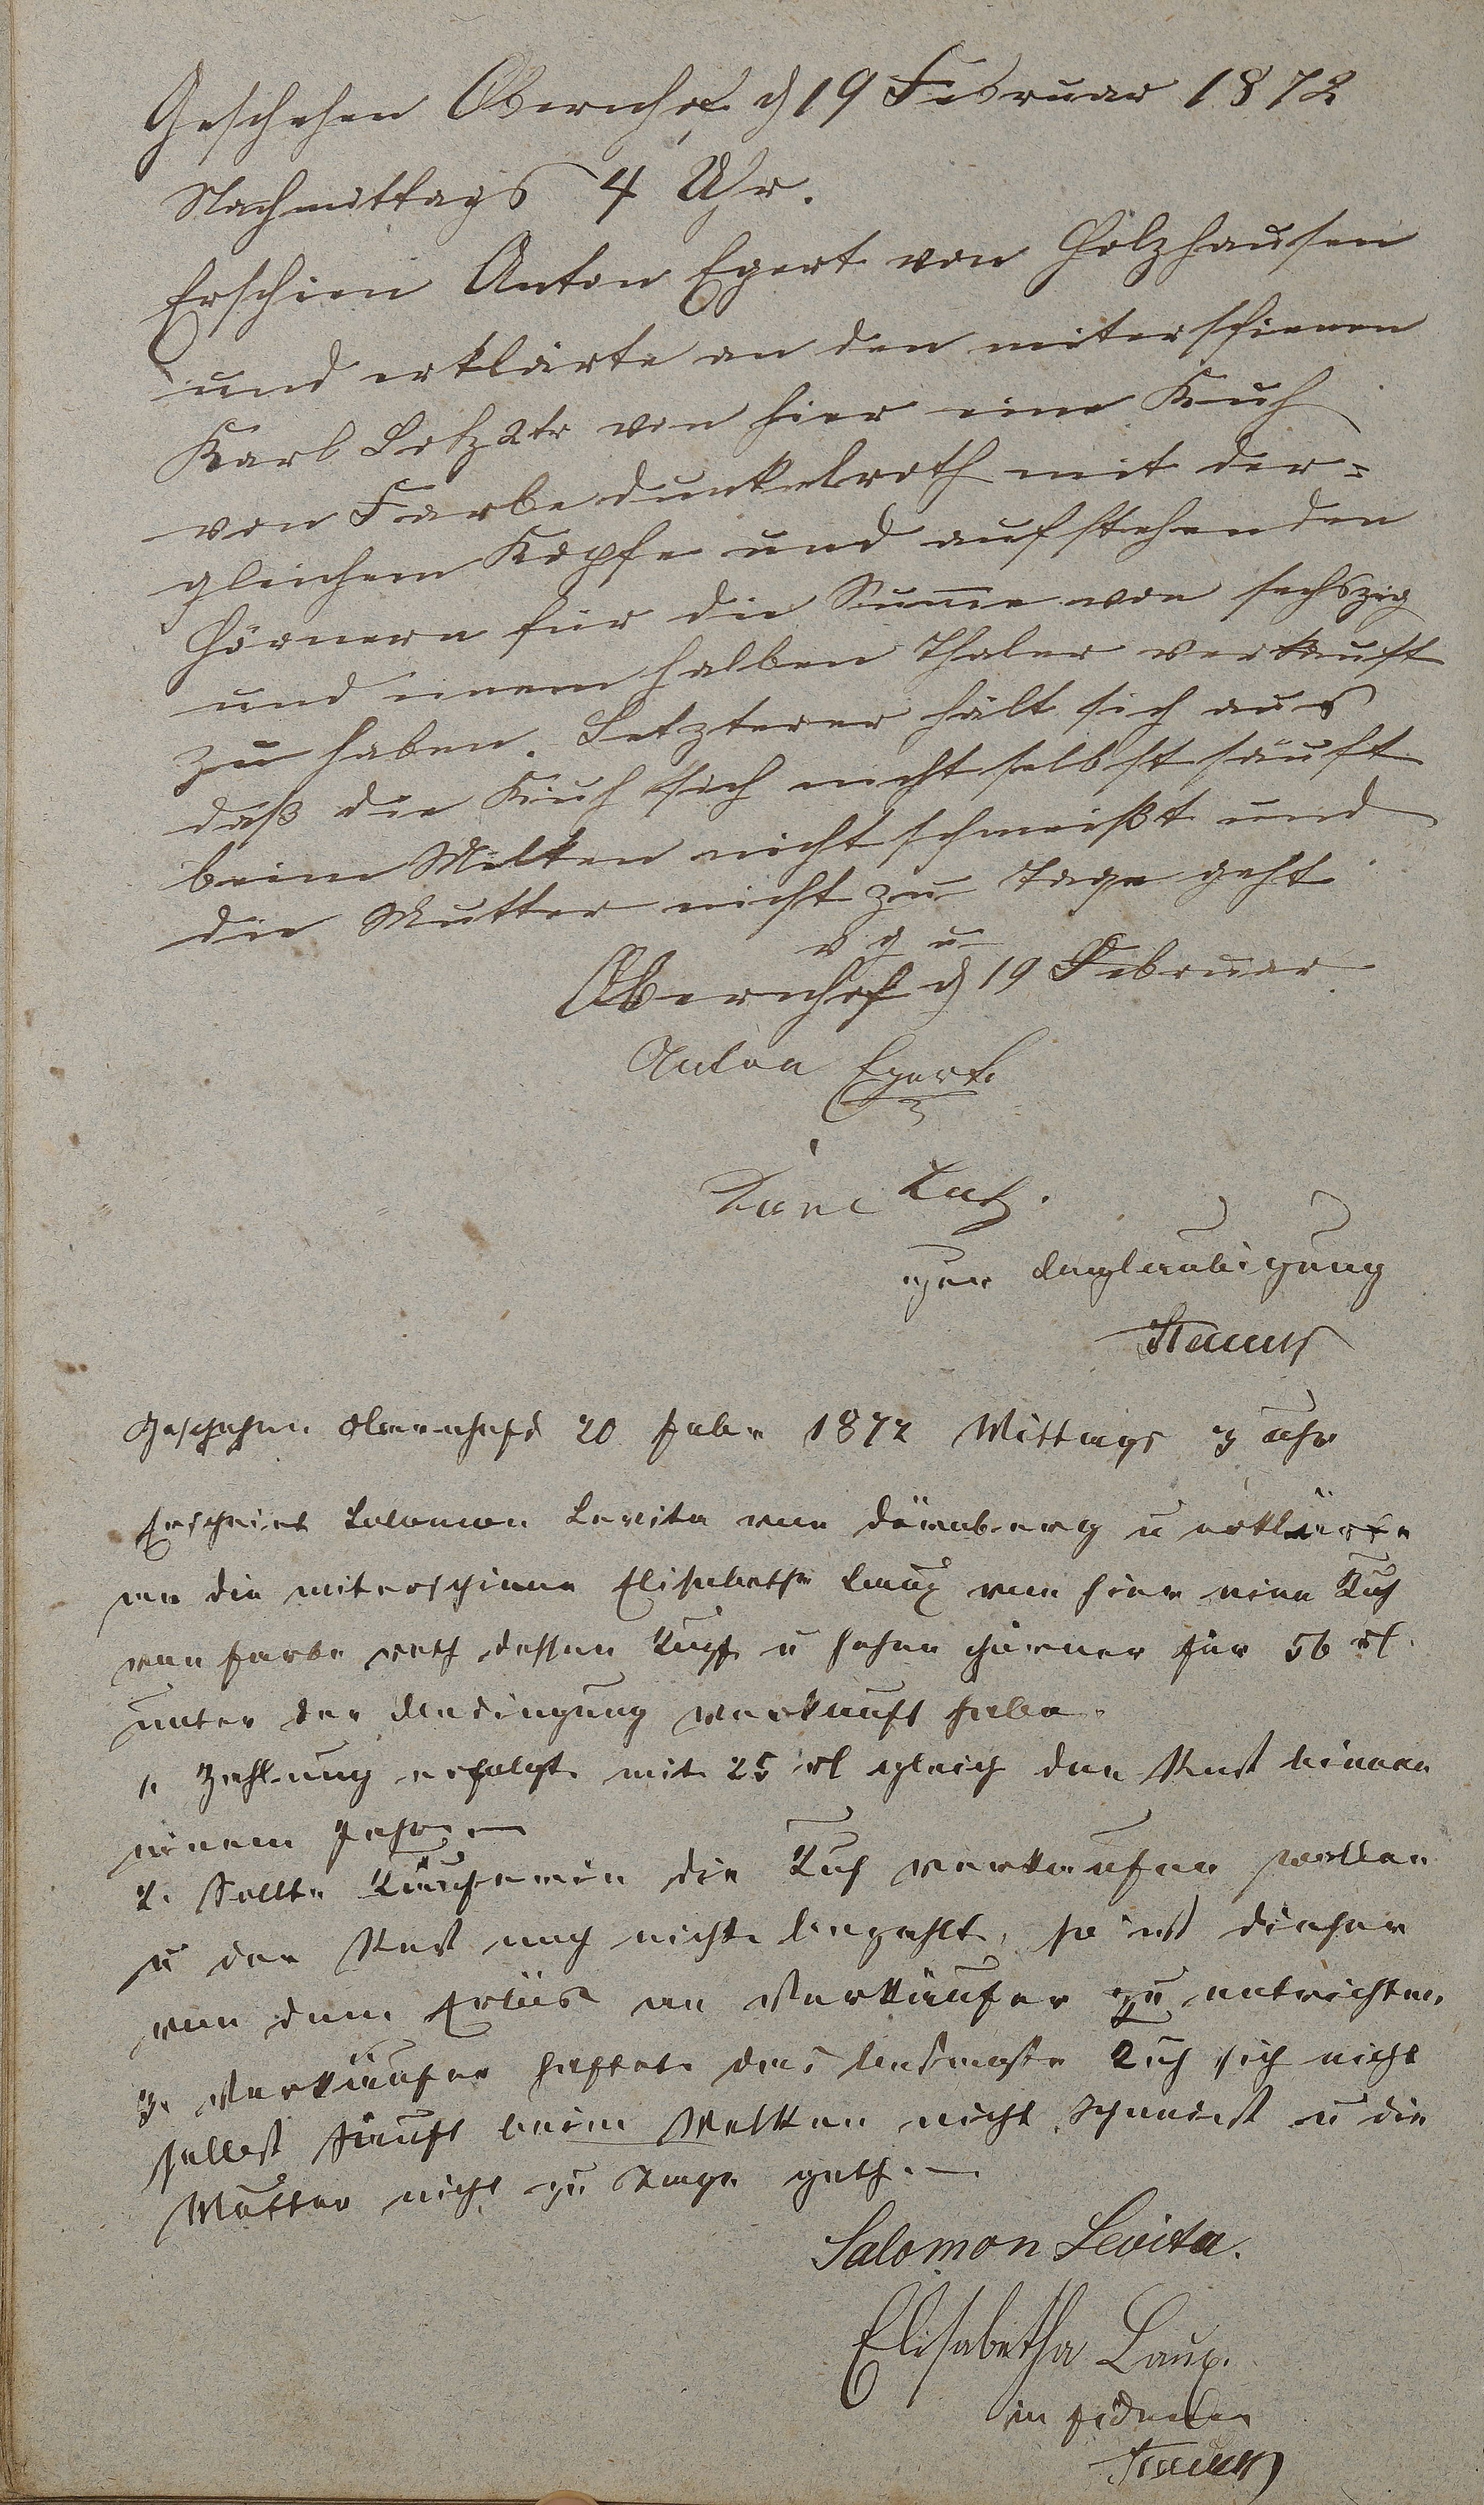 Geschehen Obernhof d 19 Februar 1872
Nachmittags 4 Uhr.
Erschien Anton Egert von Holzhausen
und erklärte an den miterschienen
Karl Lotz 2tr von hier eine Kuh
von Farbe dunkelroth mit der=
gleichem Kopfe und aufstehenden
Hörnern für die Summe von sechszig
und einem halben Thaler verkauft
zu haben. Letzterer hält sich aus
daß die Kuh sich nicht selbst säuft
beim Melken nicht schmeißt und
die Mutter nicht zu Tage geht
v g u
Obernhof d 19 Februar
Anton Egert.
Karl Lotz.
zur Beglaubigung
Geschehen Obernhof d 20 Febr 1872 Mittags 3 Uhr
Erscheint Salomon Levita von Dörnberg u erklärte
an die miterschiene Elisabethe Laux von hier eine Kuh
von Farbe roth dessen Kopf u hohen Hörner für 56 rl
unter der Bedingung verkauft habe.
1. Zahlung erfolgt mit 25 rl gleich den Rest binnen
einem Jahre
2. Sollte Käuferin die Kuh verkaufen wollen
u den Rest noch nicht bezahlt, so ist dieser
von dem Erlös an Verkäufer zu entrichten
3. Verkäufer haftet das besagte Kuh sich nicht
selbst säuft beim Melken nicht schmeist u die
Mutter nicht zu Tage geth.
Salomon Levita.
Elisabetha Laux.
in fidem